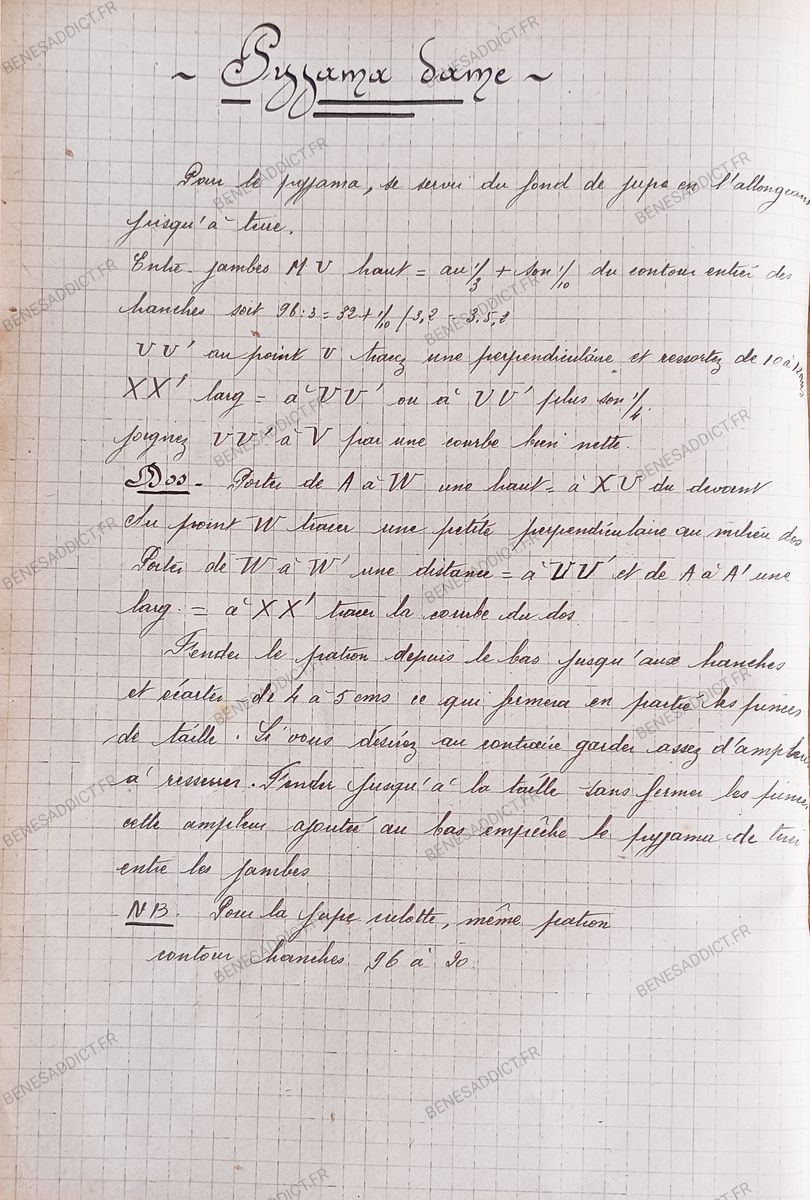 ~ Pyjama dame ~
Pour le pyjama, se servir du fond de jupe en l'allongeant
jusqu'à terre.
Entre-jambes M U haut = au 1/3 + son 1/10 du contour entier des
hanches soit 96:3 = 32 + 1/10 / 3,2 = 3.5,2
UU' au point U tracez une perpendiculaire et ressortez de 10 à 12 cms
XX' larg = à UU' ou à UU' plus son 1/4.
joignez UU' à V par une courbe bien nette.
Dos - Porter de A à W une haut = à XU du devant
Au point W tracer une petite perpendiculaire au milieu dos
Porter de W à W' une distance = à UU' et de A à A' une
larg. = à XX' tracer la courbe du dos.
Fender le patron depuis le bas jusqu'aux hanches
et écarter de 4 à 5 cms ce qui fermera en partie les pinces
de taille. Si vous désirez au contraire garder assez d'ampleur
à resserrer. Fender jusqu'à la taille sans fermer les pinces
cette ampleur ajoutée au bas empêche le pyjama de tirer
entre les jambes
NB. Pour la jupe culotte, même patron
contour hanches 96 à 90
BENESADDICT.FR